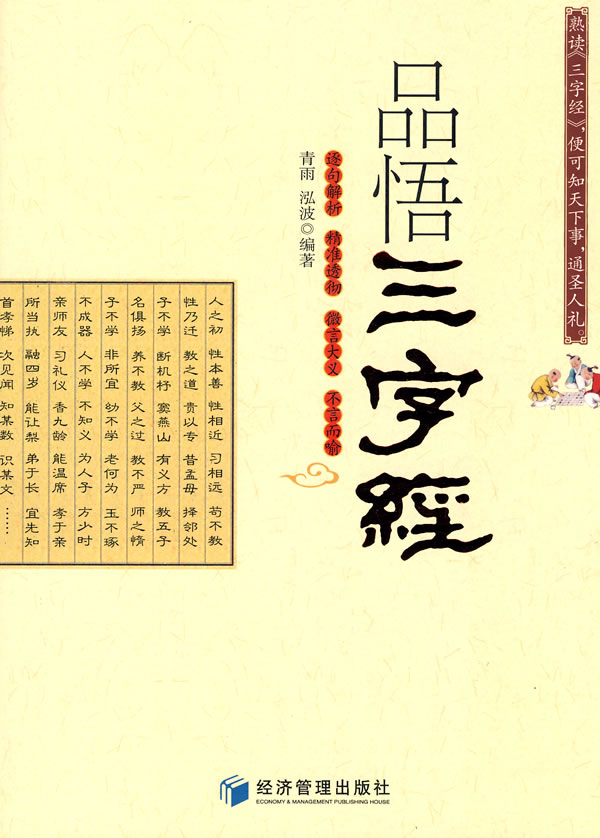 熟读《三字经》,便可知天下事,通圣人礼。
品悟
三字經
逐句解析 精准透彻 微言大义 不言而喻
青雨 泓波◎编著
人之初 性本善 性相近 习相远 苟不教
性乃迁 教之道 贵以专 昔孟母 择邻处
子不学 断机杼 窦燕山 有义方 教五子
名俱扬 养不教 父之过 教不严 师之惰
子不学 非所宜 幼不学 老何为 玉不琢
不成器 人不学 不知义 为人子 方少时
亲师友 习礼仪 香九龄 能温席 孝于亲
所当执 融四岁 能让梨 弟于长 宜先知
首孝悌 次见闻 知某数 识某文 ……
经济管理出版社
ECONOMY & MANAGEMENT PUBLISHING HOUSE